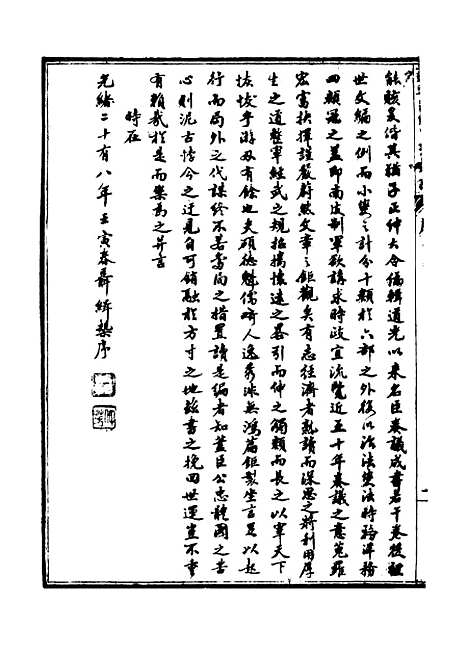 能賅爰偕其猶子正仲大令偏輯道光以來名臣奏議成書若干卷從經
世文編之例而小變之計分十類於六部之外復以治法變法時務洋務
四類冠之蓋即南皮制軍欲講求時政宜流覽近五十年奏議之意蒐羅
宏富抉擇謹嚴蔚然文章之鉅觀矣有志經濟者熟讀而深思之將利用厚
生之道整軍經武之規招攜懷遠之畧引而伸之觸類而長之以宰天下
恢恢乎游刃有餘也夫碩德魁儒碕人逸秀洙無鴻篇鉅製坐言足以起
行而局外之代謀終不若當局之措置讀是編者知藎臣公忠體國之苦
心則泥古悖今之迂見自可銷融於方寸之地茲書之挽回世運豈不重
有賴哉於是而樂為之弁言
時在
光緒二十有八年壬寅春聶緝槼序